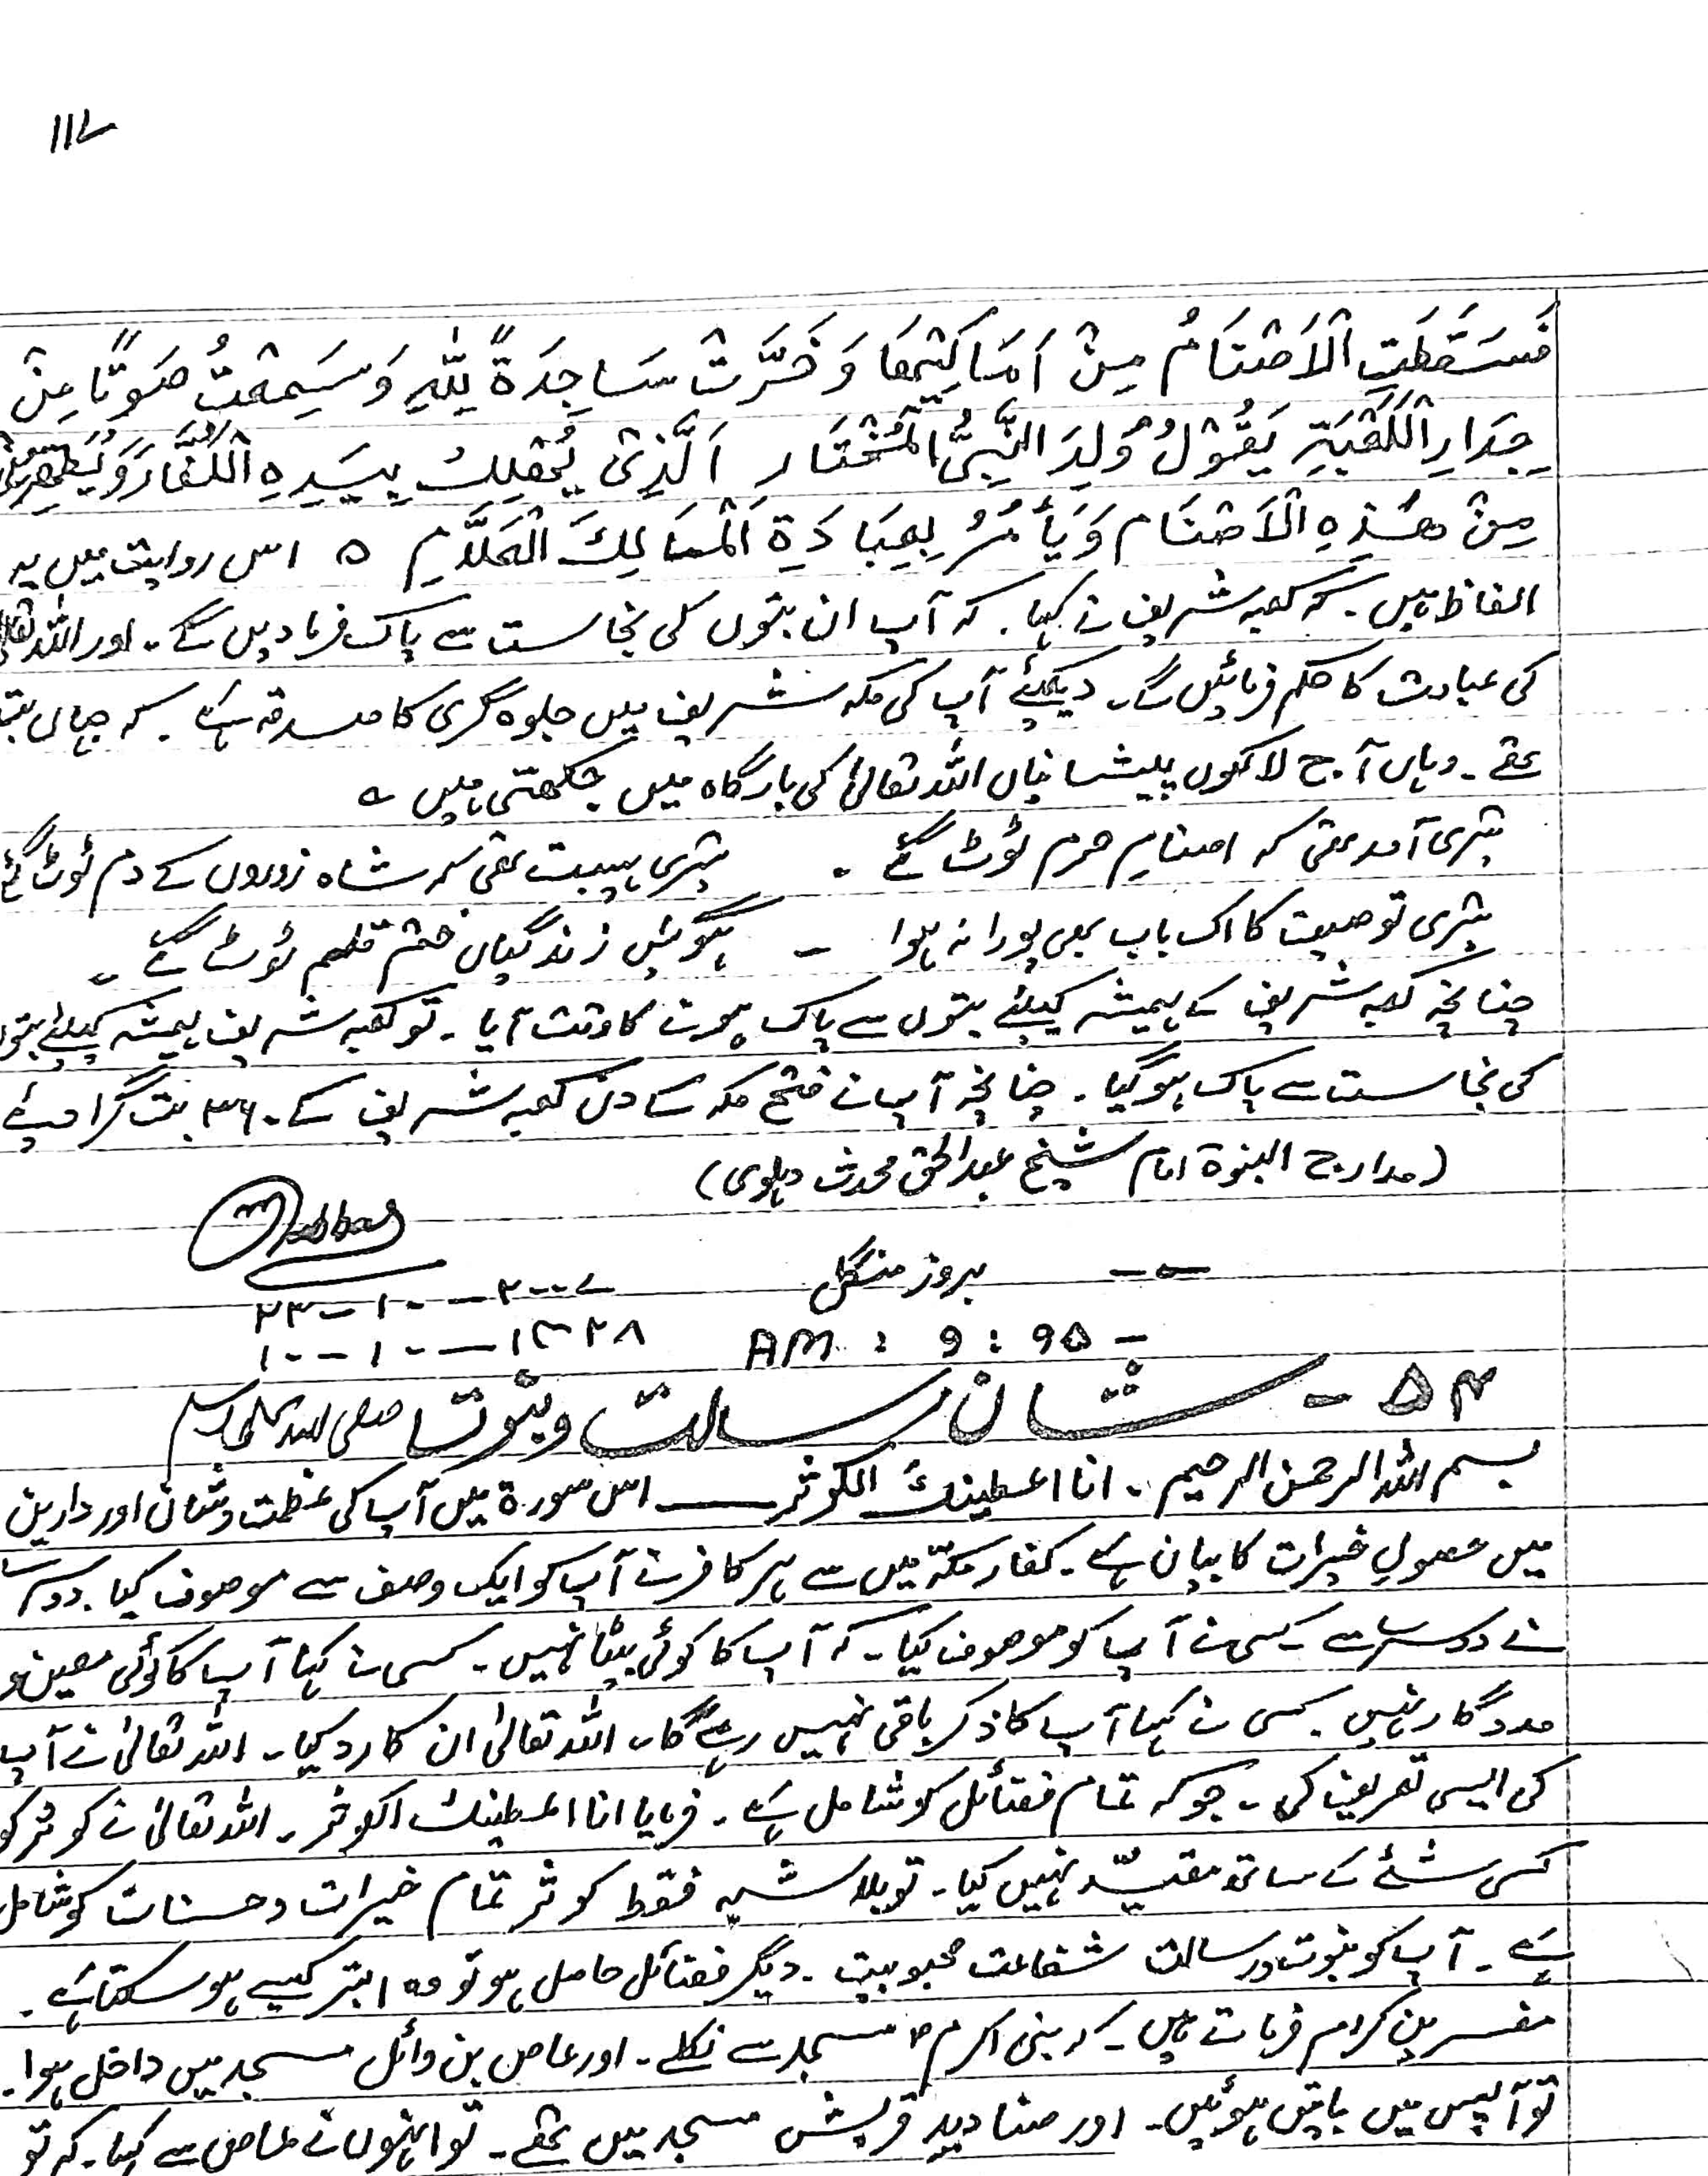 ۱۱۷
فَسَقَطَتِ الْاَصْنَامُ مِنْ اَمَاكِنِهَا وَ خَرَّتْ سَاجِدَةً لِلّٰهِ وَ سَمِعْتُ صَوْتًا مِنْ
جِدَارِ الْكَعْبَةِ يَقُوْلُ وُلِدَ النَّبِىُّ الْمُخْتَار اَلَّذِىْ يُهْلِكُ بِيَدِهِ الْكُفَّارَ وَ يُطَهِّرُنِىْ
مِنْ هٰذِهِ الْاَصْنَام وَ يَأْمُرُ بِعِبَادَةِ الْمَالِكَ الْعَلَّامِ ہ اس روایت میں یہ
الفاظ ہیں ۔ کہ کعبہ شریف نے کہا ۔ کہ آپ ان بتوں کی نجاست سے پاک فرما دیں گے ۔ اور اللہ تعالیٰ
کی عبادت کا حکم فرمائیں گے ۔ دیکھیئے آپ کی مکہ شریف میں جلوہ گری کا صدقہ ہے ۔ کہ جہاں بت
تھے ۔ وہاں آج لاکھوں پیشانیاں اللہ تعالیٰ کی بارگاہ میں جھکتی ہیں ۔
تیری آمد تھی کہ اصنامِ حرم ٹوٹ گئے ۔ تیری ہیبت تھی کہ شاہ زوروں کے دم ٹوٹ گئے
تیری توصیف کا اک باب بھی پورا نہ ہوا ۔ ہوگئیں زندگیاں ختم قلم ٹوٹ گئے ۔
چنانچہ کعبہ شریف کے ہمیشہ کیلئے بتوں سے پاک ہونے کا وقت آیا ۔ تو کعبہ شریف ہمیشہ کیلئے بتوں
کی نجاست سے پاک ہوگیا ۔ چنانچہ آپ نے فتح مکہ کے دن کعبہ شریف کے ۳۶۰ بت گرا دیئے
(مدارج النبوۃ امام شیخ عبدالحق محدث دہلوی)
بروز منگل ۲۳-۱۰-۲۰۰۷
AM : 9 : ۹۵ - ۱۰-۱۰-۱۴۲۸
۵۴ - شان رسالت و نبوت صلی اللہ علیہ وسلم
بسم اللہ الرحمٰن الرحیم ۔ انا اعطینٰك الکوثر —— اس سورۃ میں آپ کی عظمت و شان اور دارین
میں حصولِ خیرات کا بیان ہے ۔ کفار مکّہ میں سے ہر کافر نے آپ کو ایک وصف سے موصوف کیا ۔ دوسرے
نے دوسرے سے کسی نے آپ کو موصوف کیا ۔ کہ آپ کا کوئی بیٹا نہیں ۔ کسی نے کہا آپ کا کوئی معین و
مددگار نہیں ۔ کسی نے کہا آپ کا ذکر باقی نہیں رہے گا ۔ اللہ تعالیٰ ان کا رد کیا ۔ اللہ تعالیٰ نے آپ
کی ایسی تعریف کی ۔ جو کہ تمام فضائل کو شامل ہے ۔ فرمایا انا اعطینٰك الکوثر ۔ اللہ تعالیٰ نے کوثر کو
کسی شئے کے ساتھ مقیّد نہیں کیا ۔ تو بلاشبہ فقط کوثر تمام خیرات و حسنات کو شامل
ہے ۔ آپ کو نبوت و رسالت شفاعت محبوبیت ۔ دیگر فضائل حاصل ہو تو وہ ابتر کیسے ہو سکتا ہے ۔
مفسرین کرام فرماتے ہیں ۔ کہ نبی اکرم ؐ مسجد سے نکلے ۔ اور عاص بن وائل مسجد میں داخل ہوا ۔
تو آپس میں باتیں ہوئیں ۔ اور صنادیدِ قریش مسجد میں تھے ۔ تو انہوں نے عاص سے کہا ۔ کہ تو